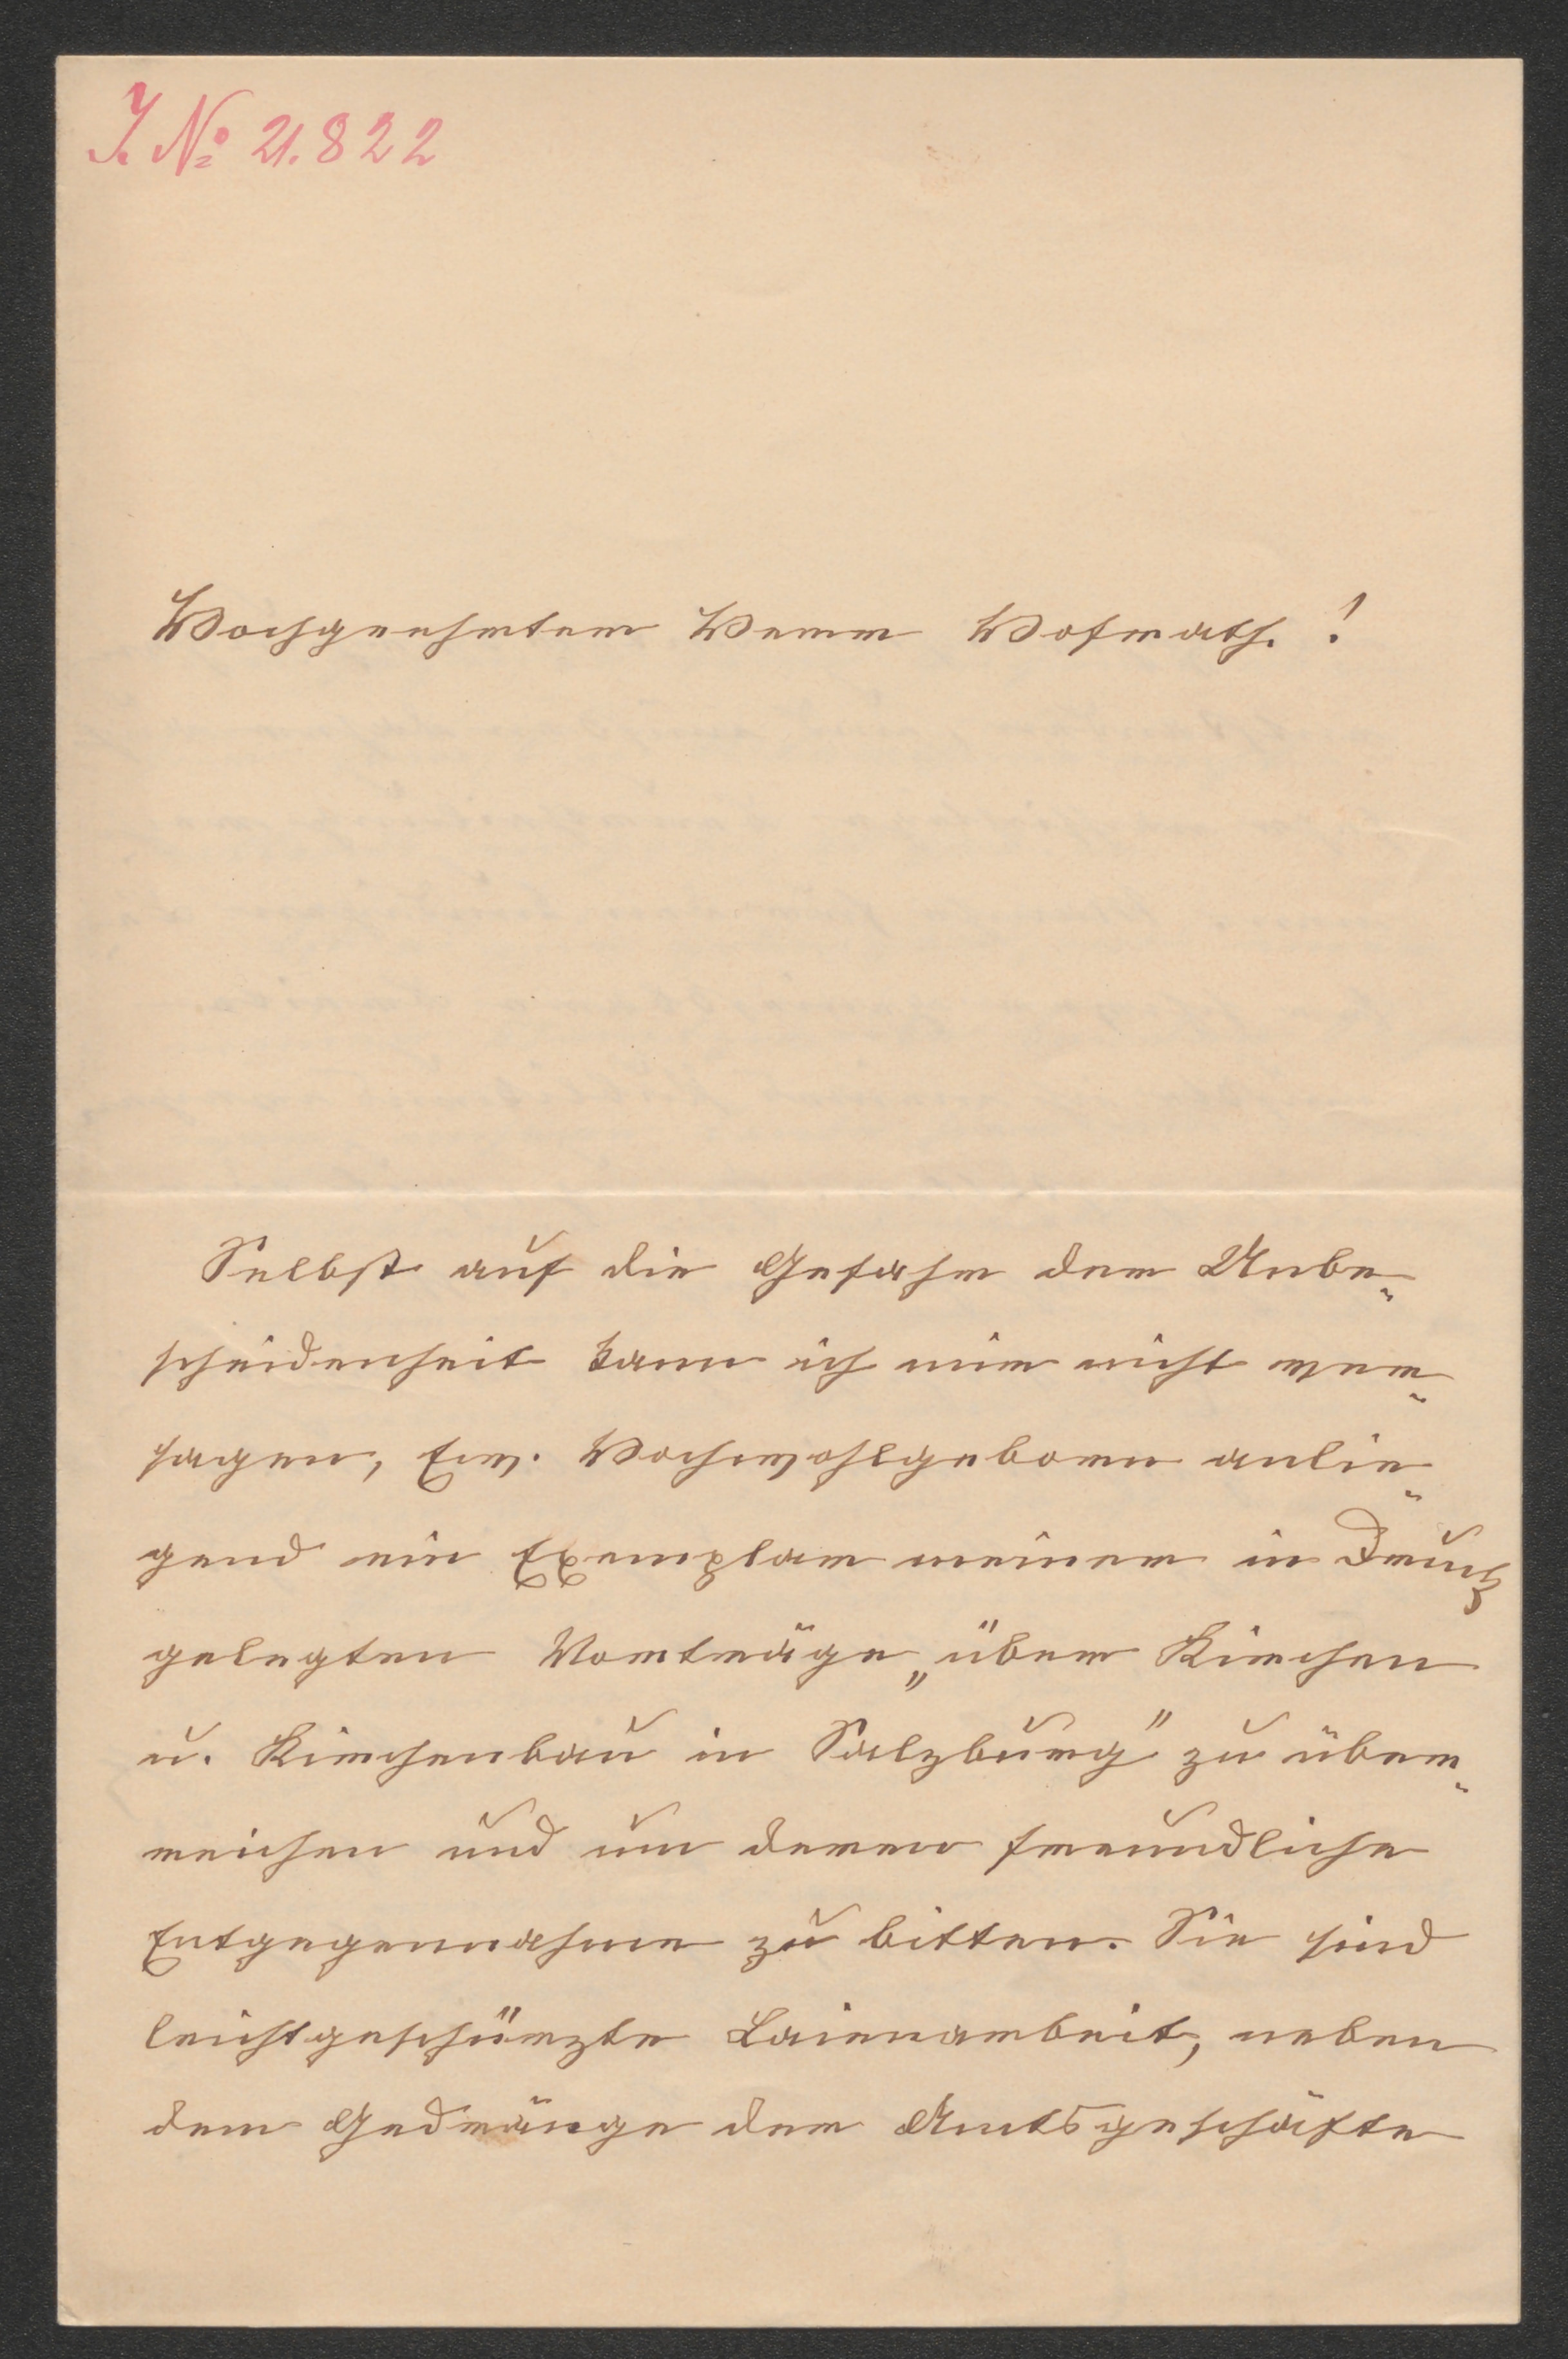 I. No 21.822
Hochgeehrter Herr Hofrath!
Selbst auf die Gefahr der Unbe-
scheidenheit kann ich mir nicht ver-
sagen, Euer. Hochwohlgeboren anlie-
gend ein Exemplar meiner in Druck
gelegten Vorträge „über Kirchen
u. Kirchenbau in Salzburg" zu über-
reichen und um deren freundliche
Entgegennahme zu bitten. Sie sind
leichtgeschürzte Laienarbeit, neben
dem Gedränge der Amtsgeschäfte